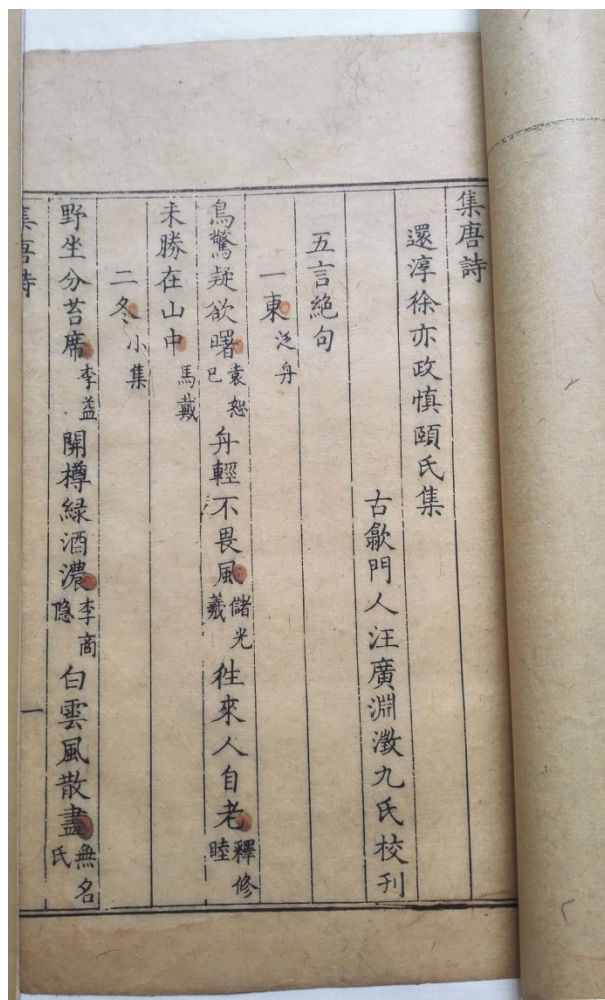 集唐詩
還淳徐亦政慎頤氏集
古歙門人汪廣淵澂九氏校刊
五言絶句
一東泛舟
鳥驚疑欲曙袁恕己舟輕不畏風儲光羲往來人自老釋修睦
未勝在山中馬戴
二冬小集
野坐分苔席李益開樽緑酒濃李商隐白雲風散盡無名氏
集唐詩
一